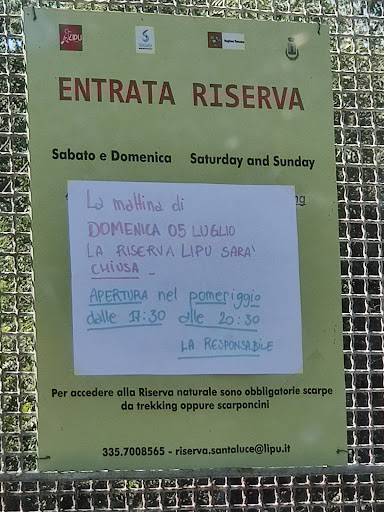 LIPU
Regione Toscana
ENTRATA RISERVA
Sabato e Domenica Saturday and Sunday
ng
La mattina di
DOMENICA 05 LUGLIO
LA RISERVA LIPU SARA'
CHIUSA
APERTURA nel pomeriggio
dalle 17:30 alle 20:30
LA RESPONSABILE
Per accedere alla Riserva naturale sono obbligatorie scarpe
da trekking oppure scarponcini
335.7008565 - riserva.santaluce@lipu.it